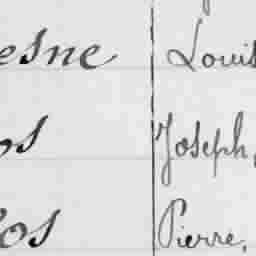 esne Louis
os Joseph,
los Pierre,